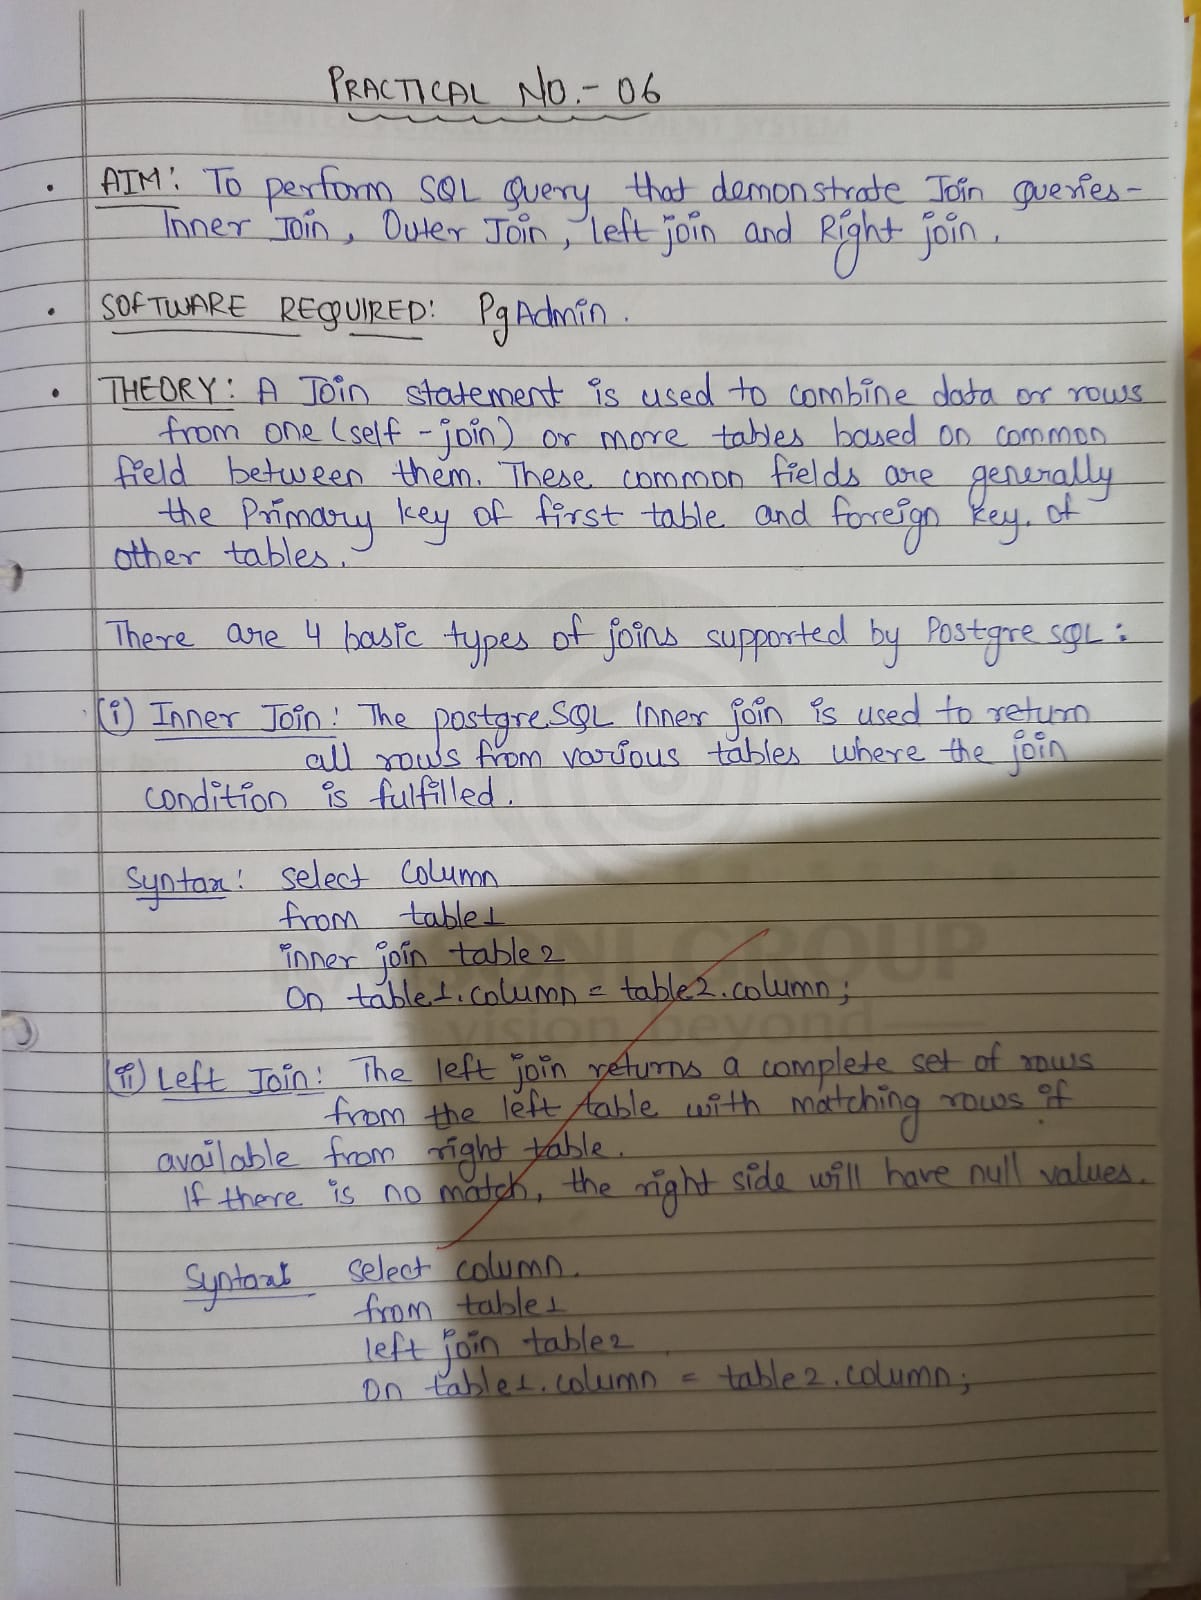 PRACTICAL NO.- 06
• AIM: To perform SQL Query that demonstrate Join queries-
Inner Join, Outer Join, left join and Right join.
• SOFTWARE REQUIRED: PgAdmin.
• THEORY: A Join statement is used to combine data or rows
from one (self-join) or more tables based on common
field between them. These common fields are generally
the Primary key of first table and foreign key. of
other tables.
There are 4 basic types of joins supported by Postgre SQL:
(i) Inner Join: The postgreSQL Inner join is used to return
all rows from various tables where the join
condition is fulfilled.
Syntax: select column
from table1
inner join table2
On table1.column = table2.column;
(ii) Left Join: The left join returns a complete set of rows
from the left table with matching rows if
available from right table.
If there is no match, the right side will have null values.
Syntax: select column.
from table1
left join table2
on table1.column = table2.column;